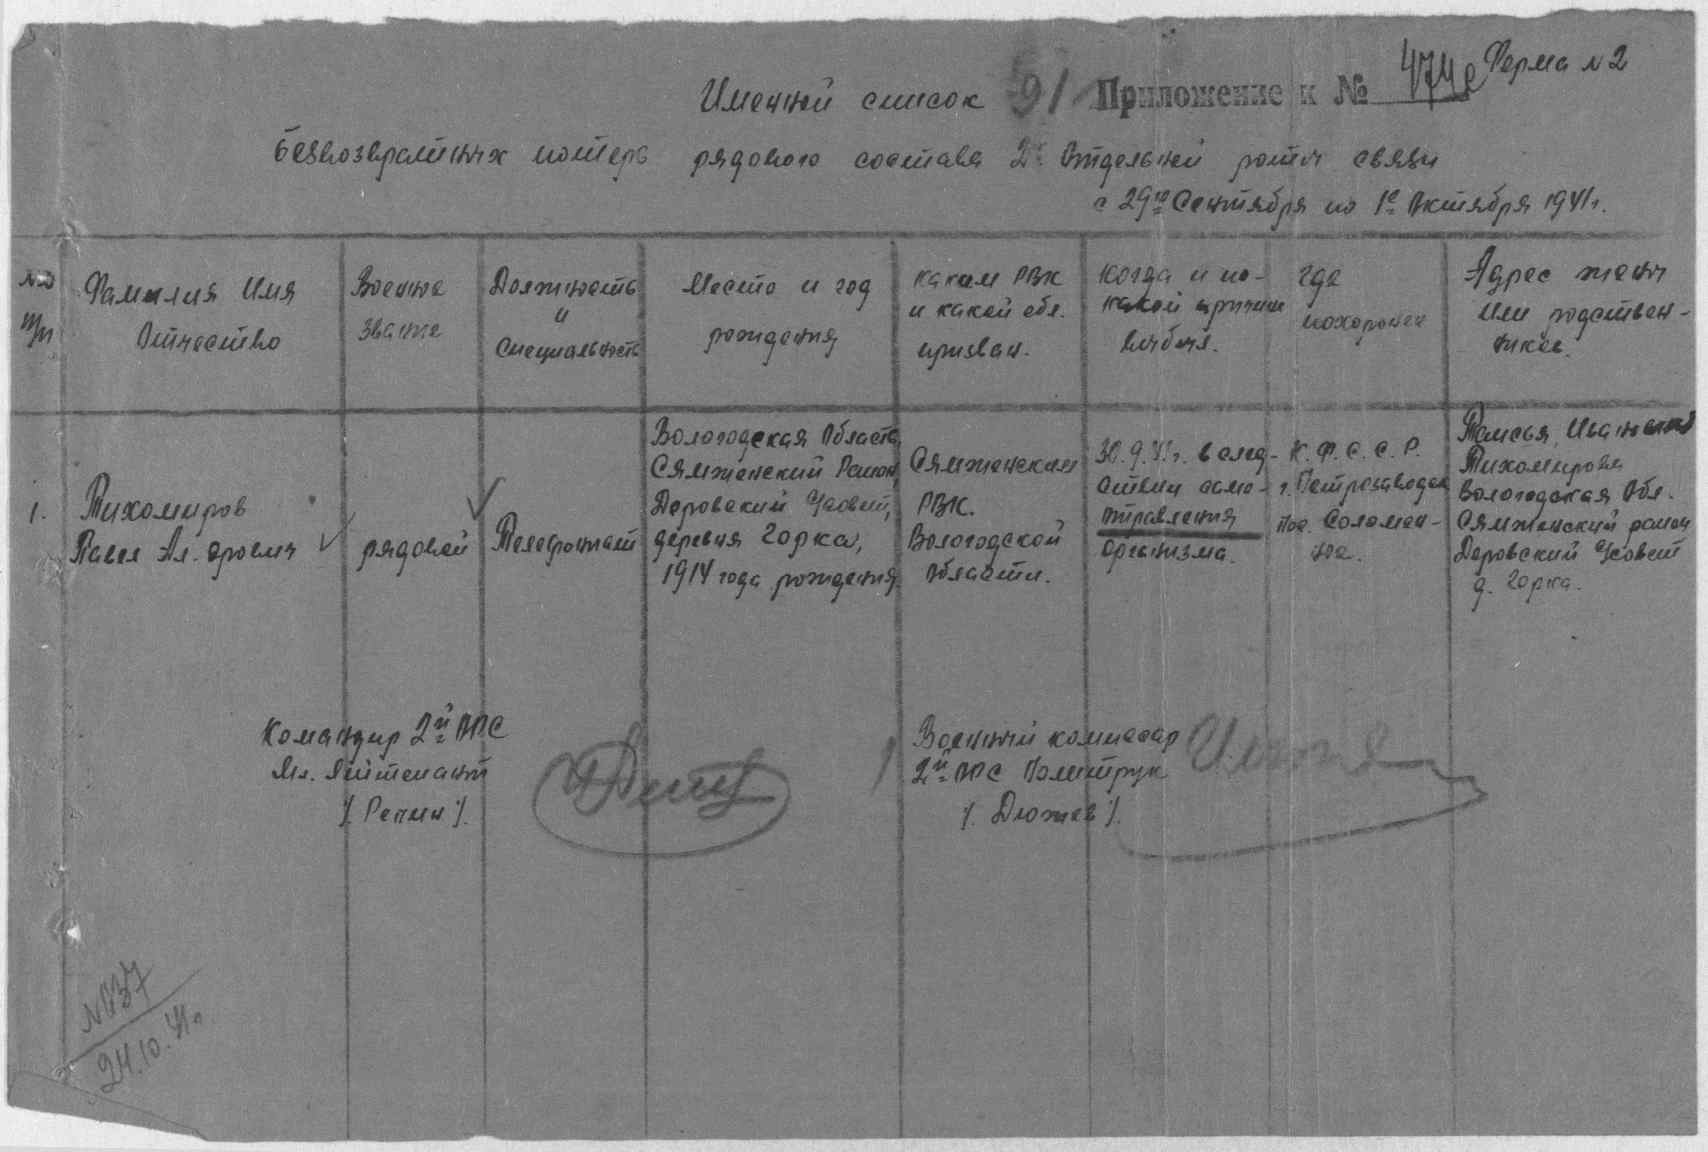 Форма № 2
Именной список 91 Приложение к № 474с
безвозвратных потерь рядового состава 2й Отдельной роты связи
с 29го Сентября по 1е Октября 1941г.
№№ п/п
Фамилия Имя Отчество
Военное звание
Должность и специальность
Место и год рождения
каким РВК и какой обл. призван.
когда и по какой причине выбыл.
где похоронен
Адрес жены или родствен-ников.
1.
Тихомиров
Павел
рядовой
Телефонист
Вологодская Область,
Сямженский Район,
Деровский С/совет,
деревня Горка,
1914 года рождения
Сямженским
РВК.
Вологодской
Области.
30.9.41г. в след-
ствии само-
отравления
организма.
К.Ф.С.С.Р.
г. Петрозаводск
пос. Соломен-
ное.
Таисья Ивановна
Тихомирова
Вологодская Обл.
Сямженский район
Деровский С/совет
д. Горка.
Командир 2й ОРС
Мл. Лейтенант
/. Репин /.
Военный комиссар
2й ОРС Политрук
/. Дюжев /.
№037
24.10.41г.